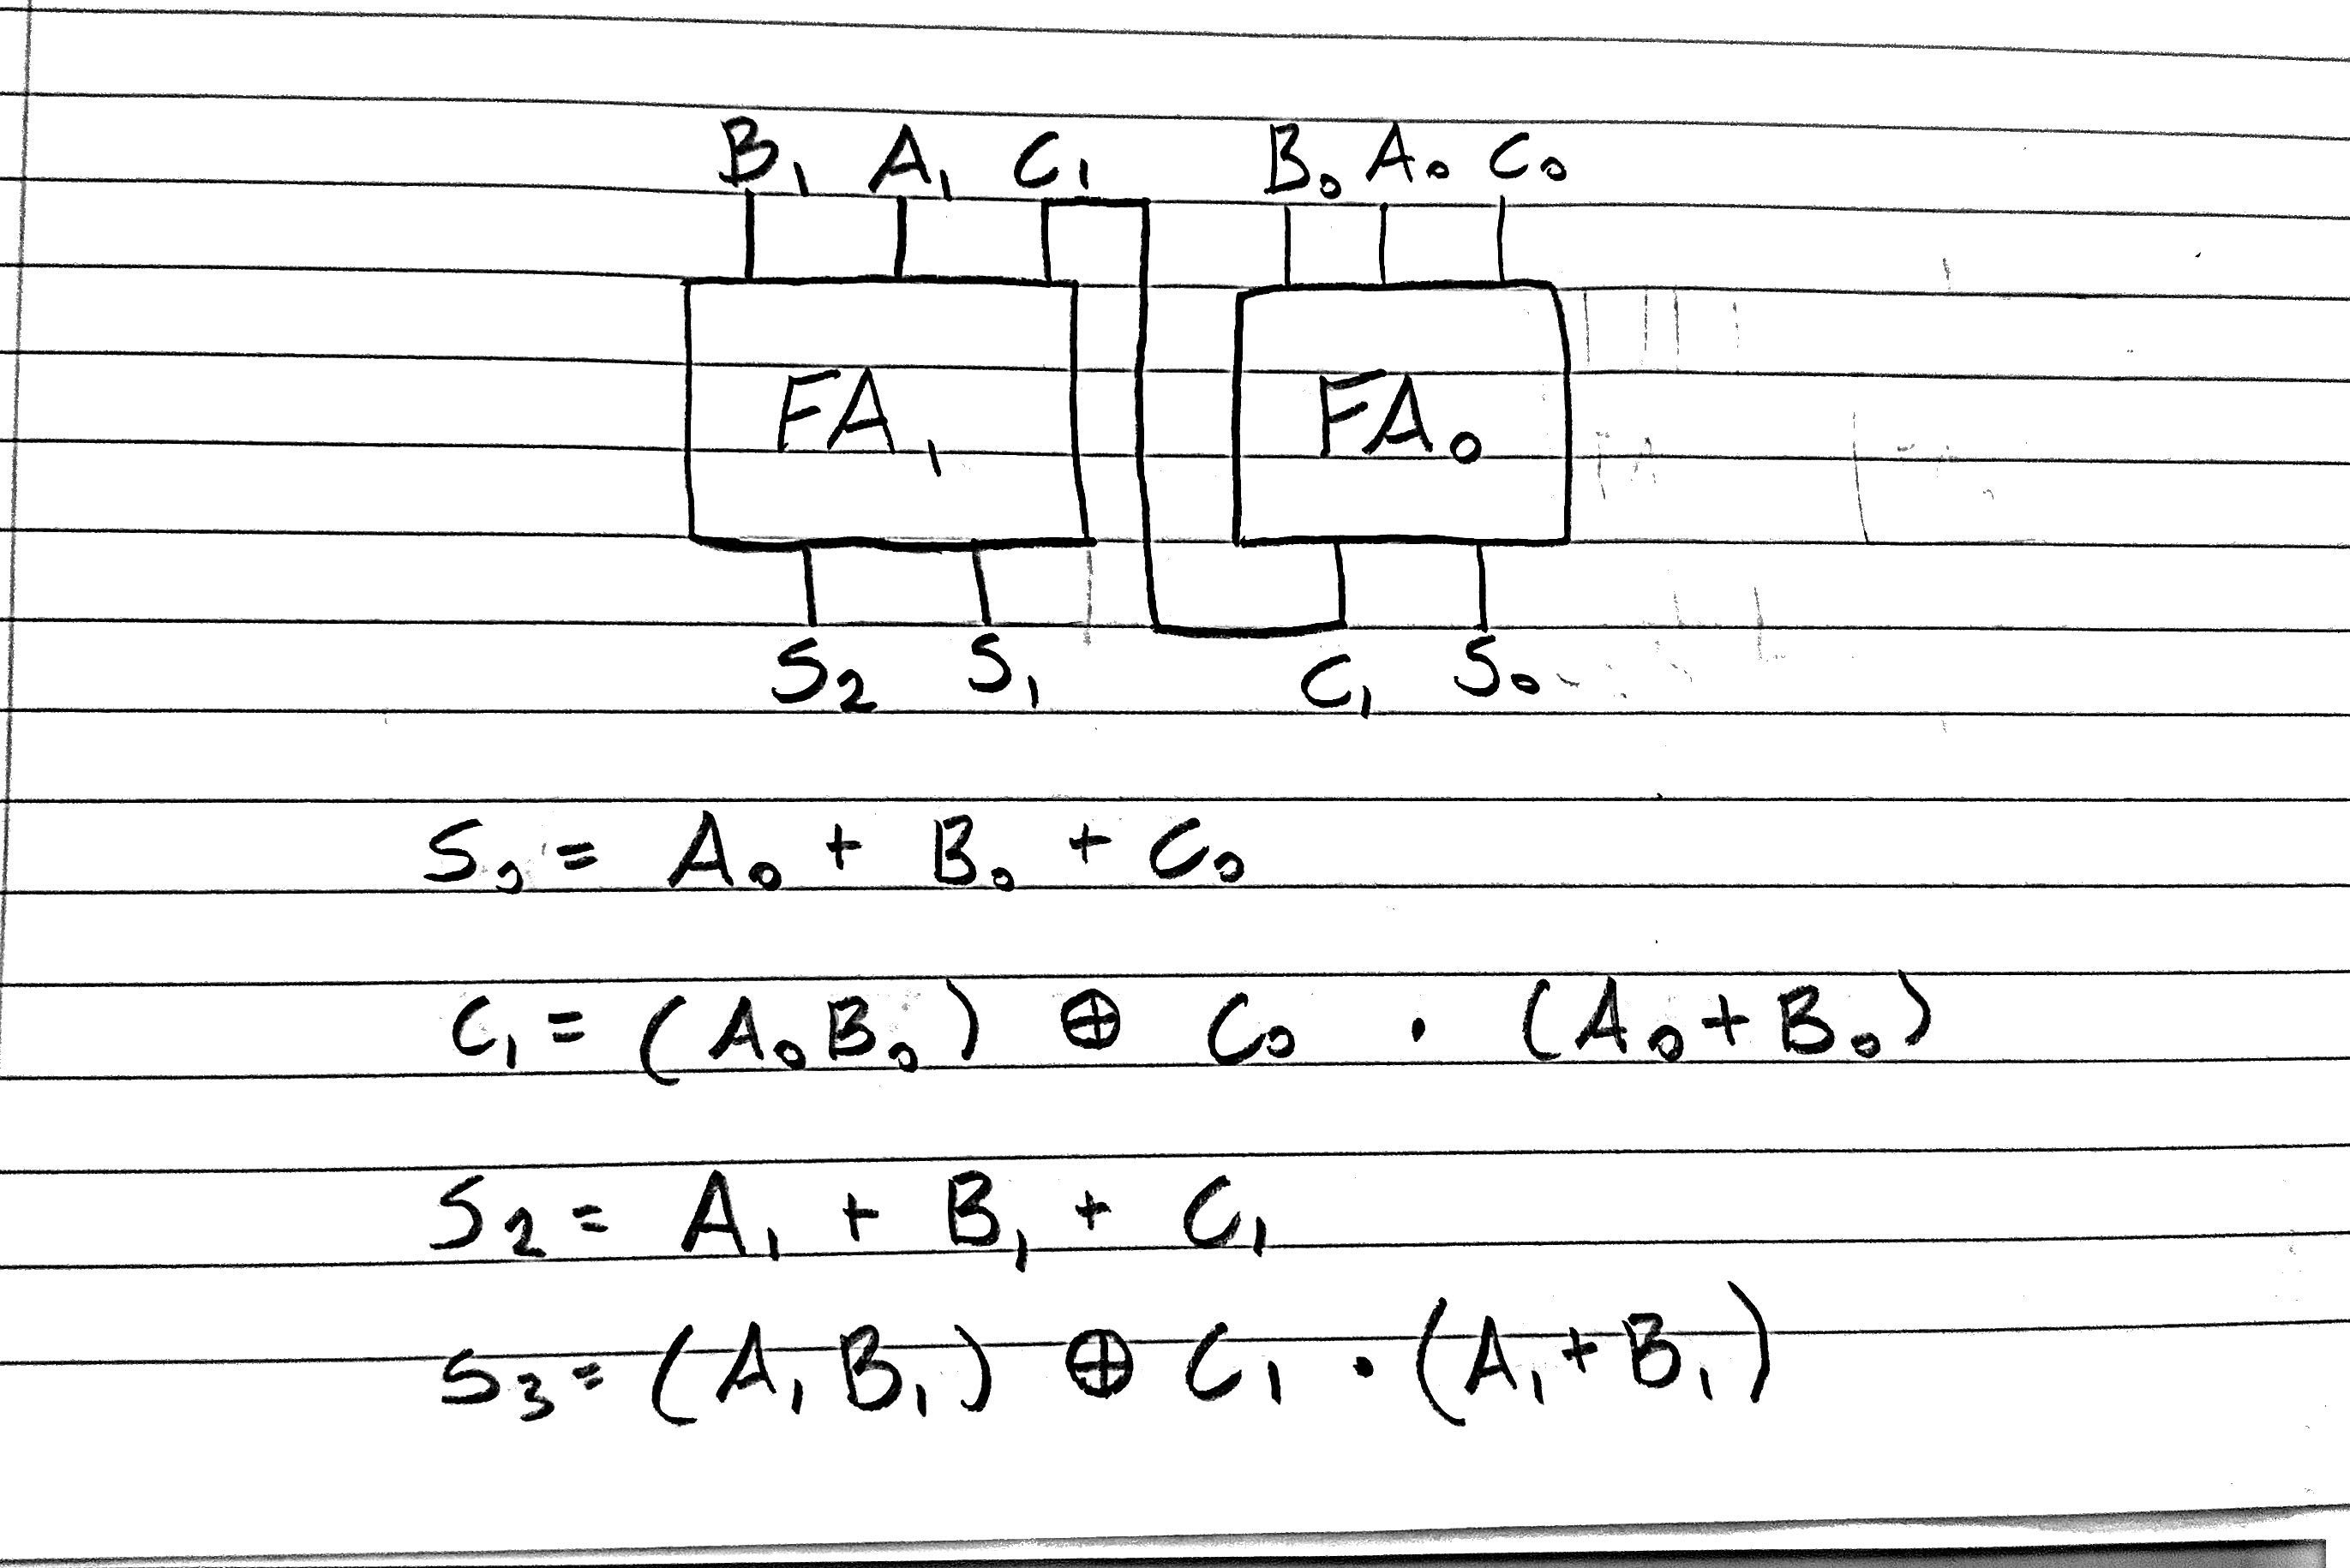 B₁ A₁ C₁ B₀ A₀ C₀
FA₁ FA₀
S₂ S₁ C₁ S₀
S₀ = A₀ + B₀ + C₀
C₁ = (A₀B₀) ⊕ C₀ · (A₀ + B₀)
S₂ = A₁ + B₁ + C₁
S₃ = (A₁B₁) ⊕ C₁ · (A₁ + B₁)